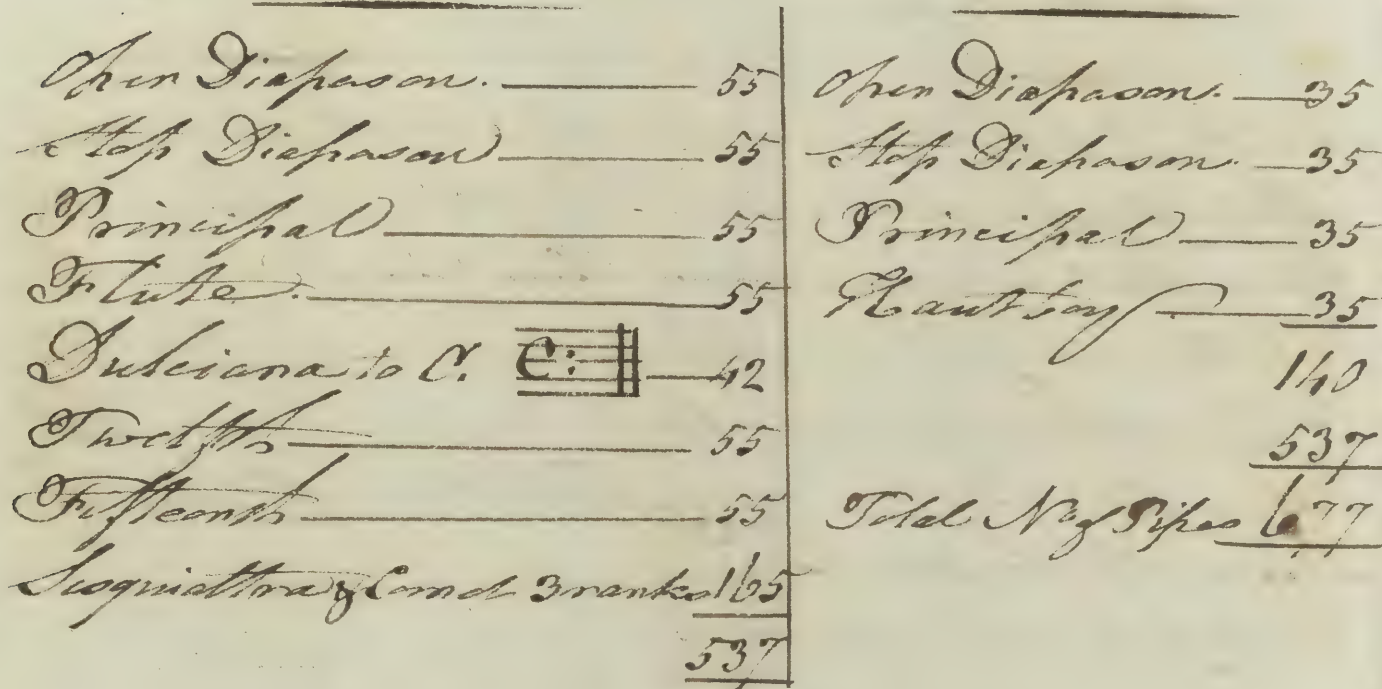 Open Diapason. 55
Stop Diapason 55
Principal 55
Flute. 55
Dulciana to C. C: 42
Twelfth 55
Fifteenth 55
Sesquialtra & Cornet 3 ranks 165
537
Open Diapason. 35
Stop Diapason 35
Principal 35
Hautboy 35
140
537
Total No of Pipes 677